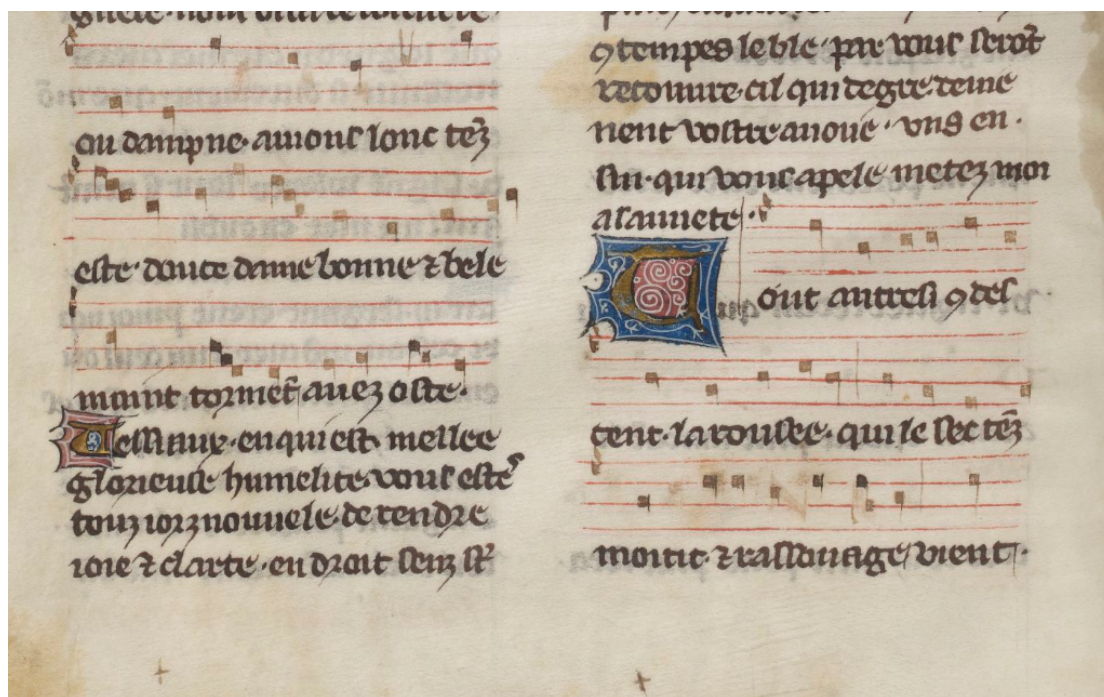 ou dampne· auions lonc tēz
este· douce dame bonne ⁊ bele
maint tormēt auez oste·
Uessiaux· en qui est mellee
glorieuse humelite· vous este
touz iorz nouuele· de rendre
ioie ⁊ clarte· en droit senz
ꝯ tempes le ble· par vous serōt
recouure· cil qui de gre deme
nent vostre auoue· vns en·
sin· qui vous apele metez moi
a sauuete·
Tout autresi ꝯ des
cent· la rousee· qui le sec tēz
moitit· ⁊ rassouage, vient·